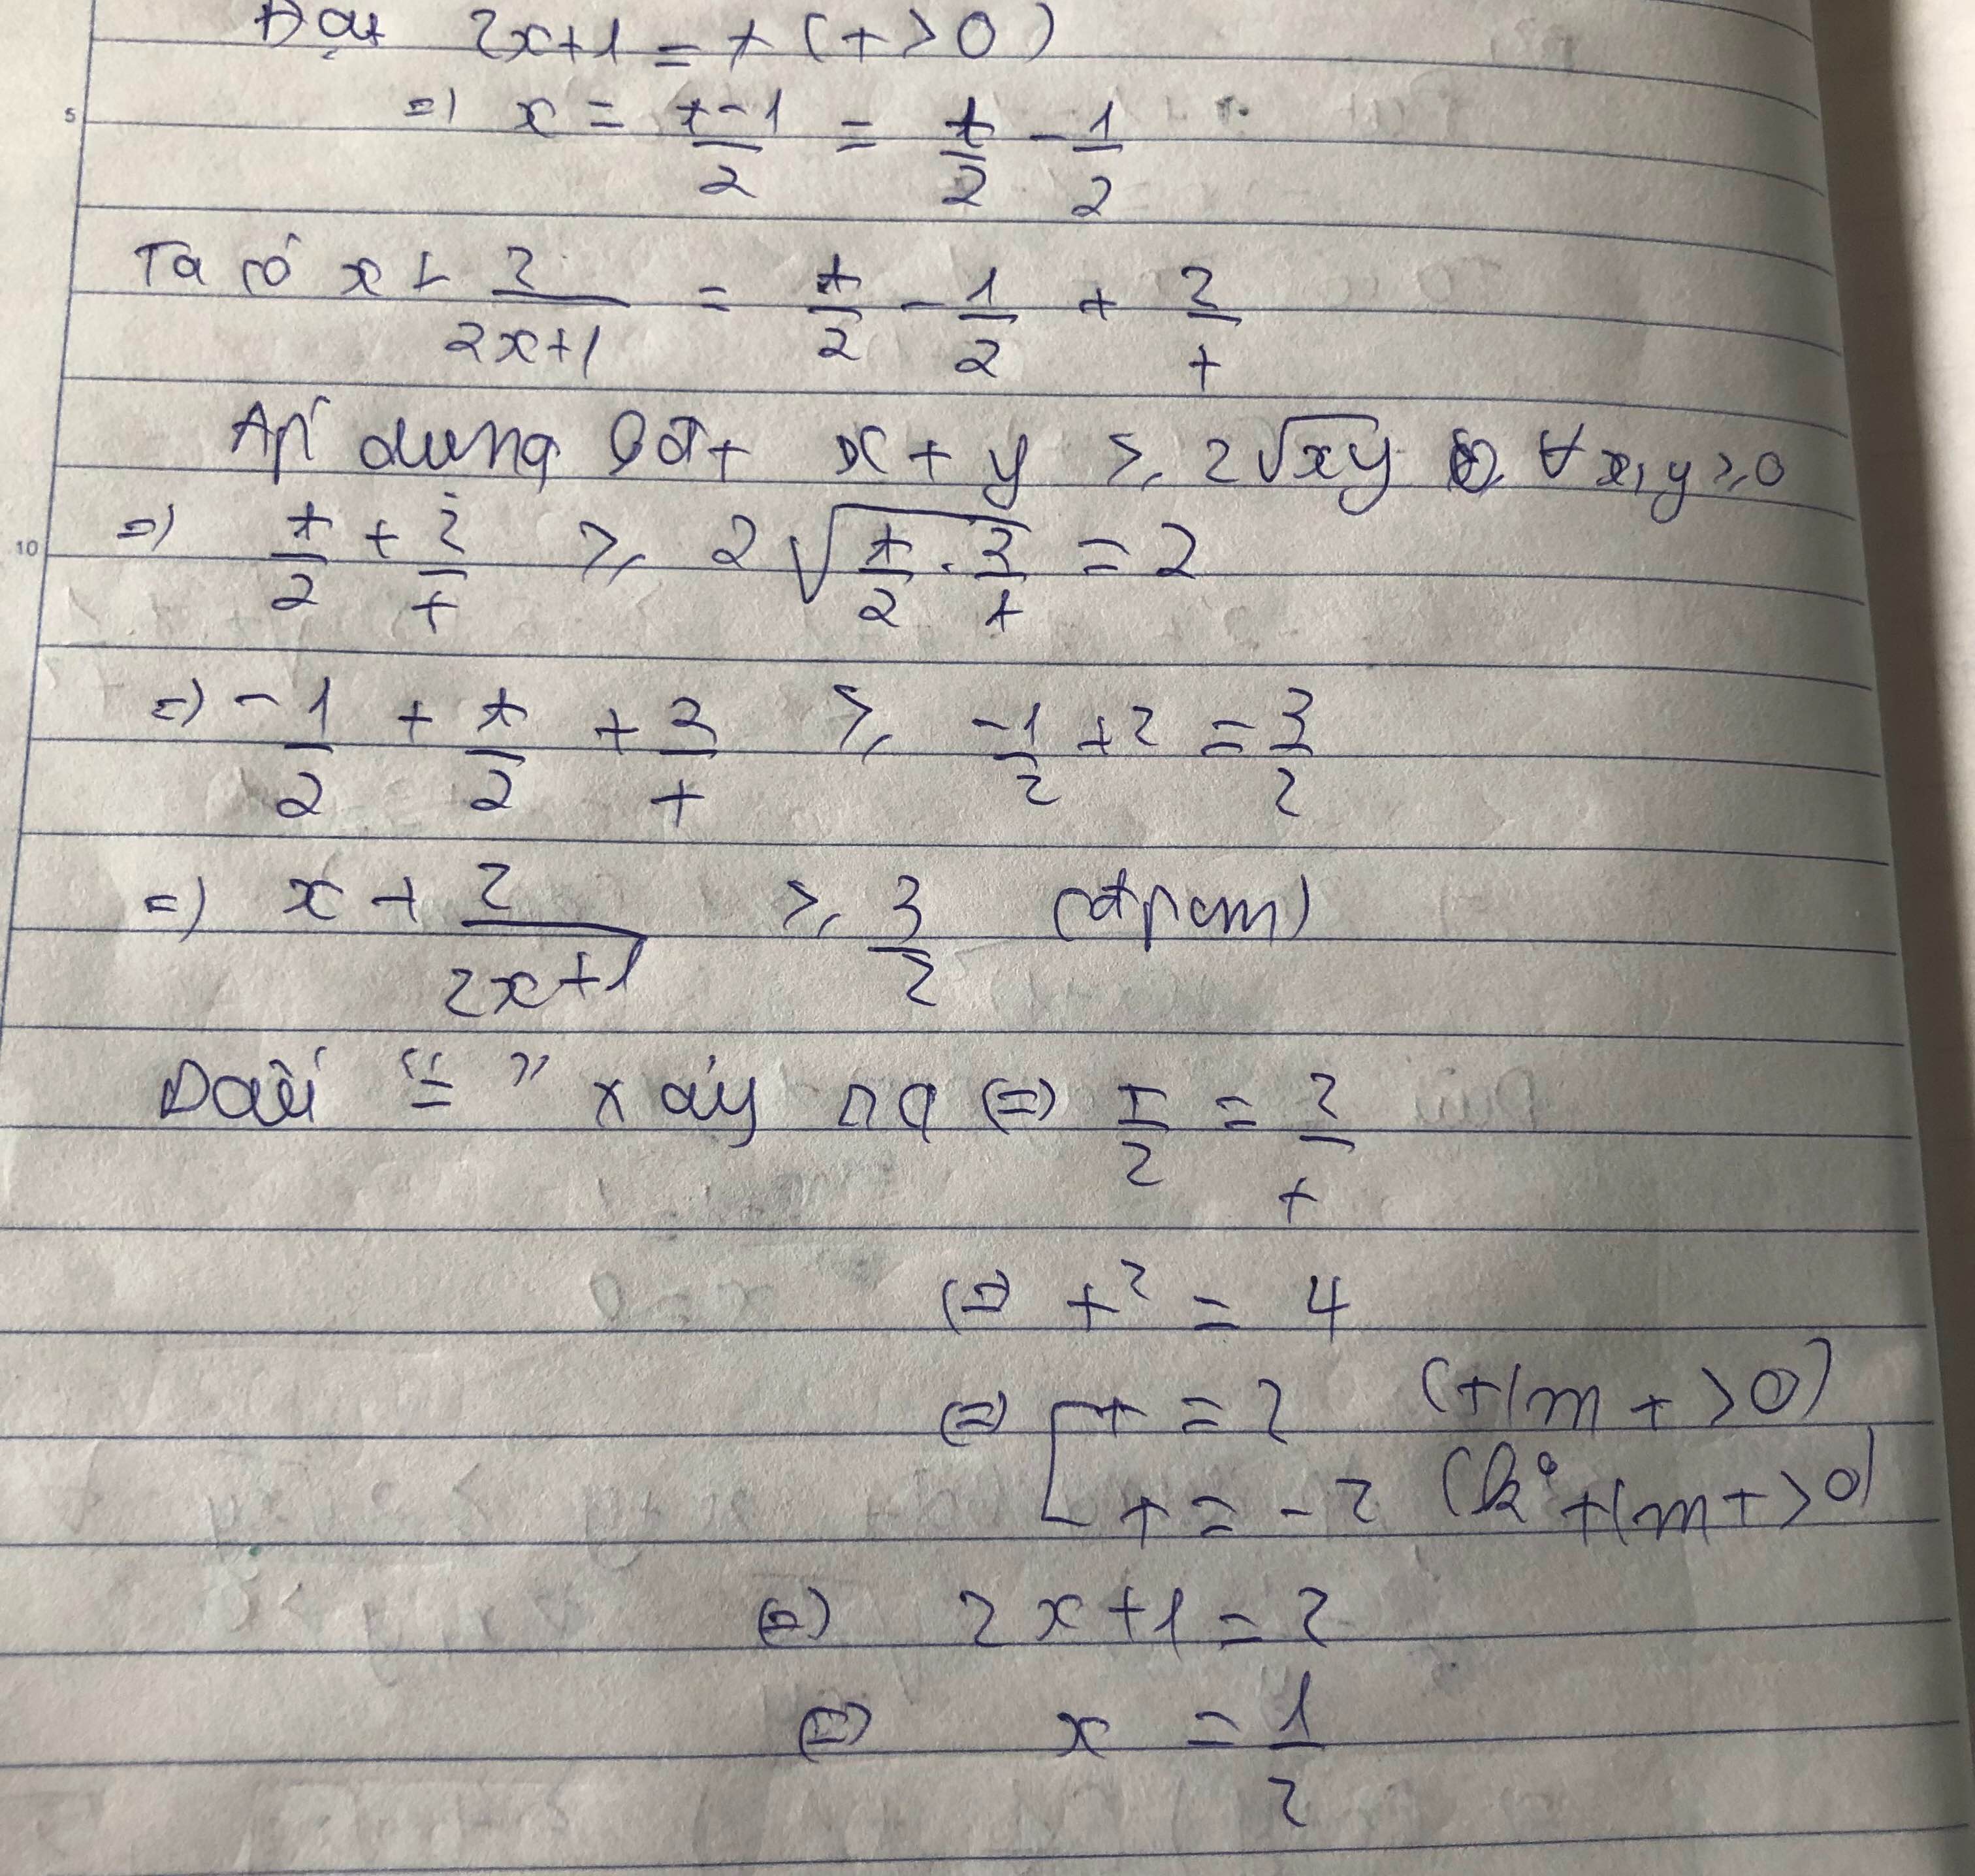 Đặt 2x+1 = t (t > 0)
5
=) x = \frac{t-1}{2} = \frac{t}{2} - \frac{1}{2}
Ta có x + \frac{2}{2x+1} = \frac{t}{2} - \frac{1}{2} + \frac{2}{t}
Áp dụng bđt x + y ≥ 2\sqrt{xy} ∀x,y ≥ 0
10
=) \frac{t}{2} + \frac{2}{t} ≥ 2\sqrt{\frac{t}{2} . \frac{2}{t}} = 2
=) -\frac{1}{2} + \frac{t}{2} + \frac{2}{t} ≥ \frac{-1}{2} + 2 = \frac{3}{2}
=) x + \frac{2}{2x+1} ≥ \frac{3}{2} (đpcm)
Dấu "=" xảy ra (=) \frac{t}{2} = \frac{2}{t}
(=) t² = 4
(=) [ t = 2 (t/m t > 0)
t = -2 (k° t/m t > 0)
(=) 2x+1 = 2
(=) x = \frac{1}{2}